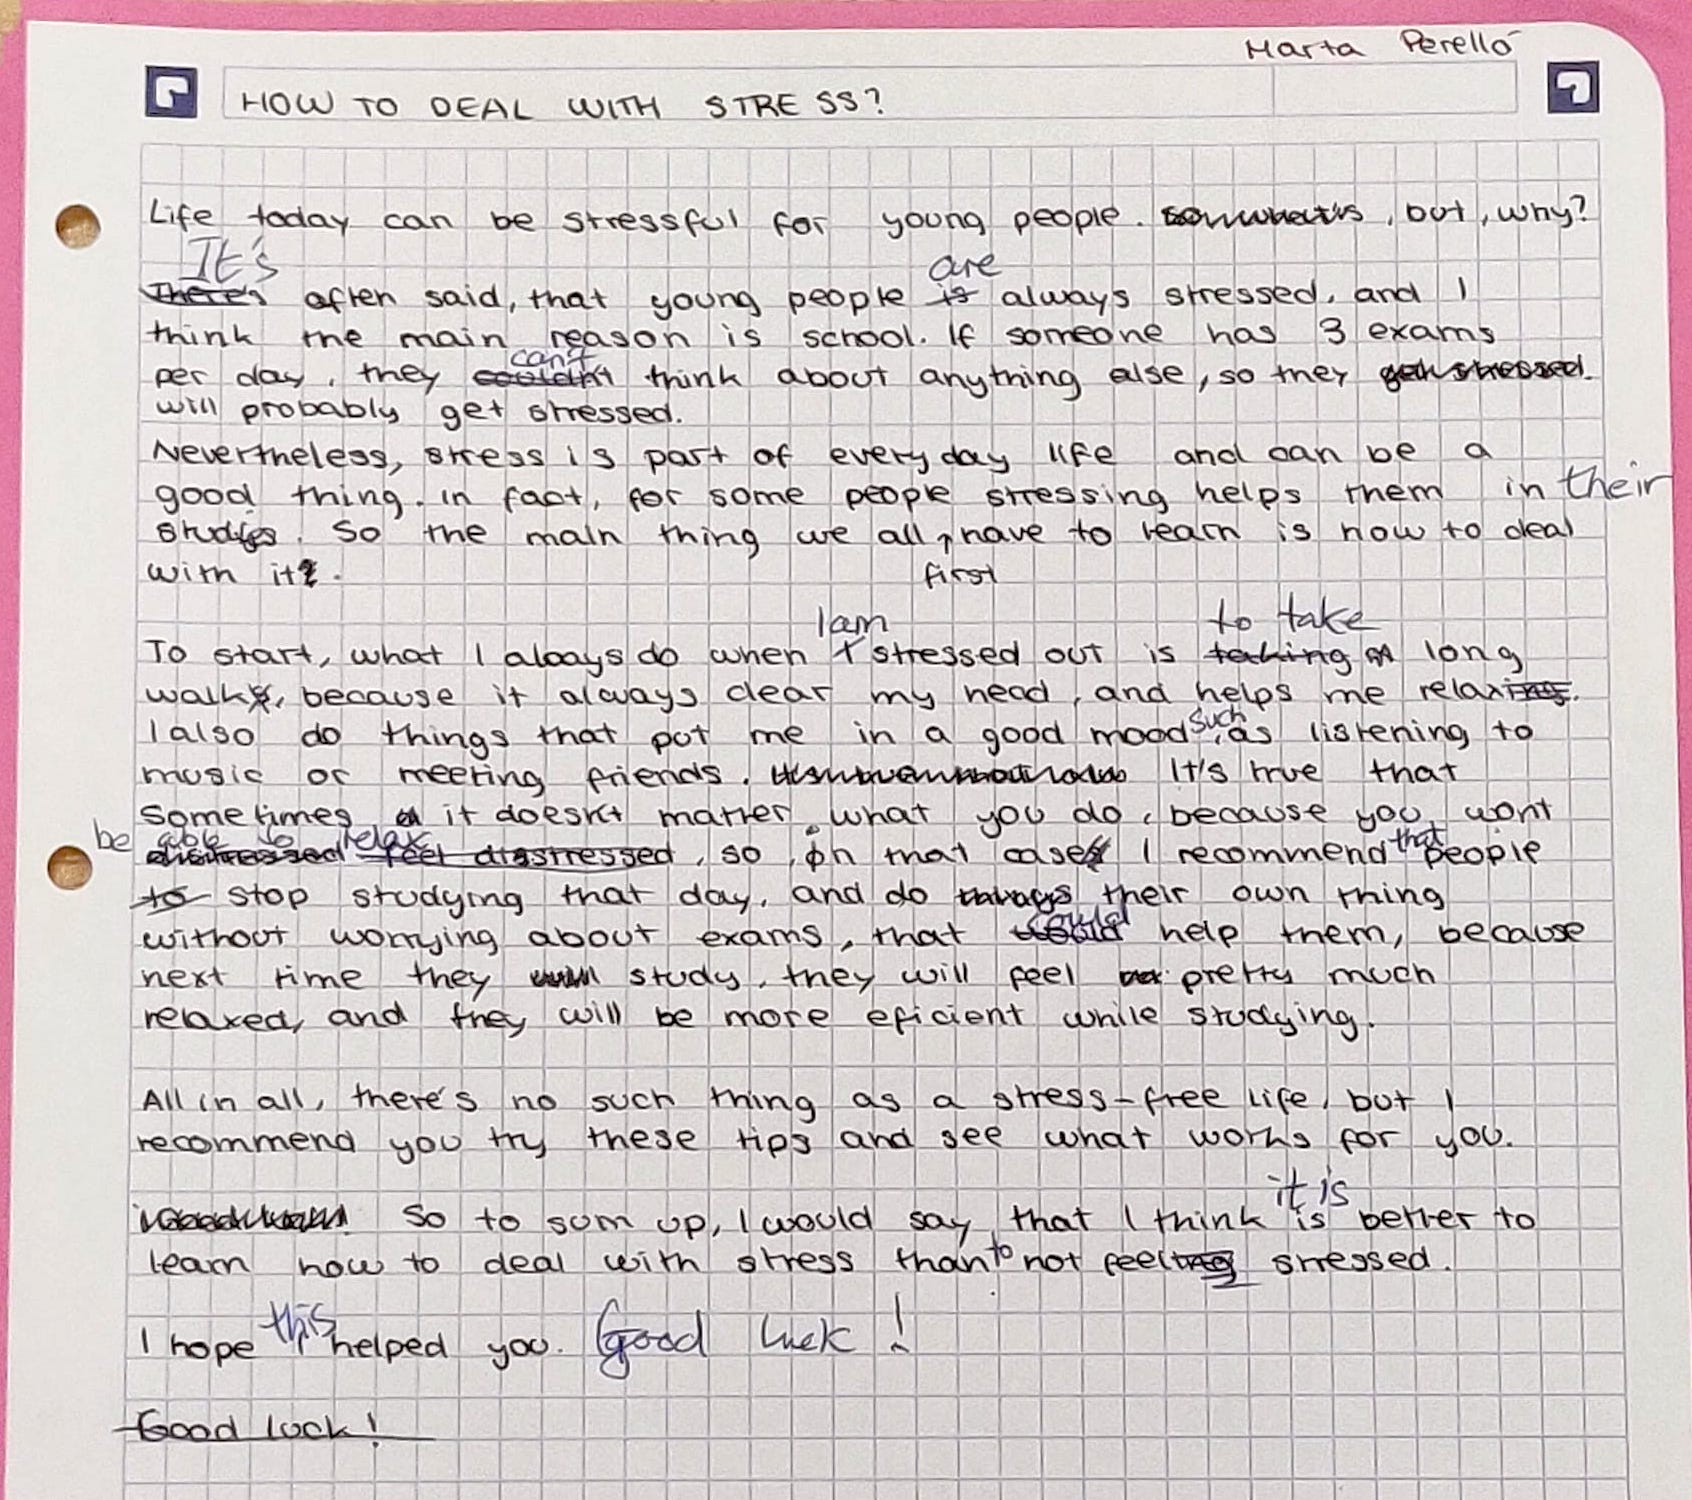 Marta Perelló
HOW TO DEAL WITH STRESS?
Life today can be stressful for young people. , but, why?
It's are
There's often said, that young people is always stressed, and I
think the main reason is school. If someone has 3 exams
can't
per day, they couldn't think about anything else, so they get stressed.
will probably get stressed.
Nevertheless, stress is part of everyday life and can be a
good thing. In fact, for some people stressing helps them in their
studies. So the main thing we all have to learn is how to deal
with it. first
I am to take
To start, what I always do when I stressed out is taking a long
walk, because it always clear my head, and helps me relaxing.
such
I also do things that put me in a good mood, as listening to
music or meeting friends. It's true that
sometimes it doesn't matter what you do, because you wont
be able to relax that
distressed feel disstressed, so, in that case I recommend people
to stop studying that day, and do their own thing
could
without worrying about exams, that would help them, because
next time they will study, they will feel pretty much
relaxed, and they will be more eficient while studying.
All in all, there's no such thing as a stress-free life, but I
recommend you try these tips and see what works for you.
it is
So to sum up, I would say, that I think is better to
to
learn how to deal with stress than not feeling stressed.
this
I hope helped you. Good luck!
Good luck!